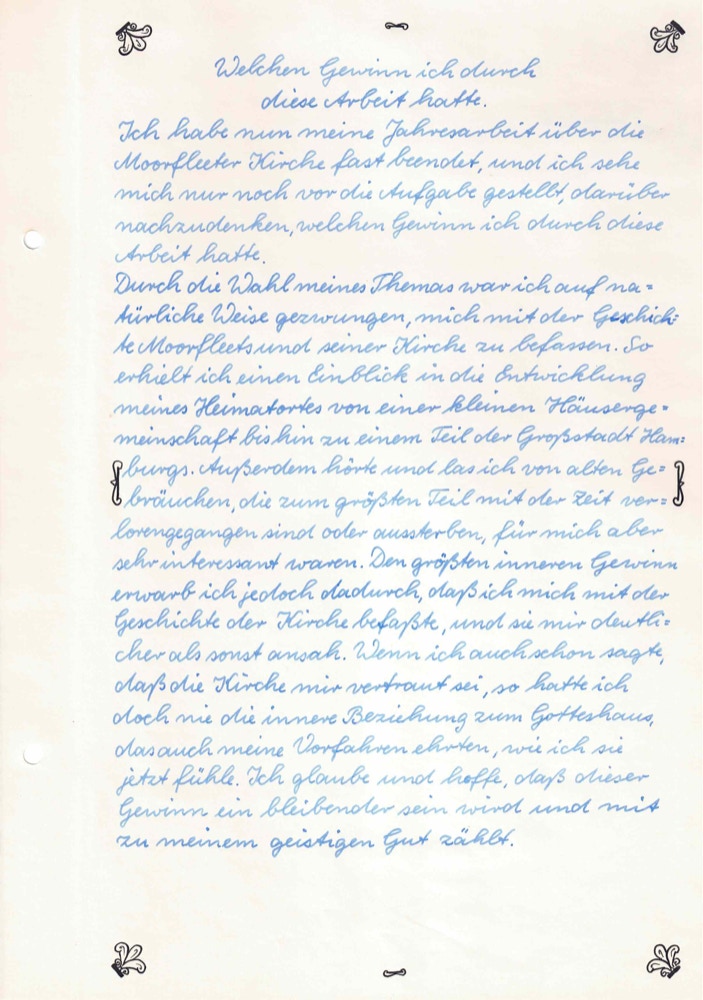 Welchen Gewinn ich durch
diese Arbeit hatte.
Ich habe nun meine Jahresarbeit über die
Moorfleeter Kirche fast beendet, und ich sehe
mich nur noch vor die Aufgabe gestellt, darüber
nachzudenken, welchen Gewinn ich durch diese
Arbeit hatte.
Durch die Wahl meines Themas war ich auf na=
türliche Weise gezwungen, mich mit der Geschich=
te Moorfleets und seiner Kirche zu befassen. So
erhielt ich einen Einblick in die Entwicklung
meines Heimatortes von einer kleinen Häuserge=
meinschaft bis hin zu einem Teil der Großstadt Ham=
burgs. Außerdem hörte und las ich von alten Ge=
bräuchen, die zum größten Teil mit der Zeit ver=
lorengegangen sind oder aussterben, für mich aber
sehr interessant waren. Den größten inneren Gewinn
erwarb ich jedoch dadurch, daß ich mich mit der
Geschichte der Kirche befaßte, und sie mir deutli=
cher als sonst ansah. Wenn ich auch schon sagte,
daß die Kirche mir vertraut sei, so hatte ich
doch nie die innere Beziehung zum Gotteshaus,
das auch meine Vorfahren ehrten, wie ich sie
jetzt fühle. Ich glaube und hoffe, daß dieser
Gewinn ein bleibender sein wird und mit
zu meinem geistigen Gut zählt.